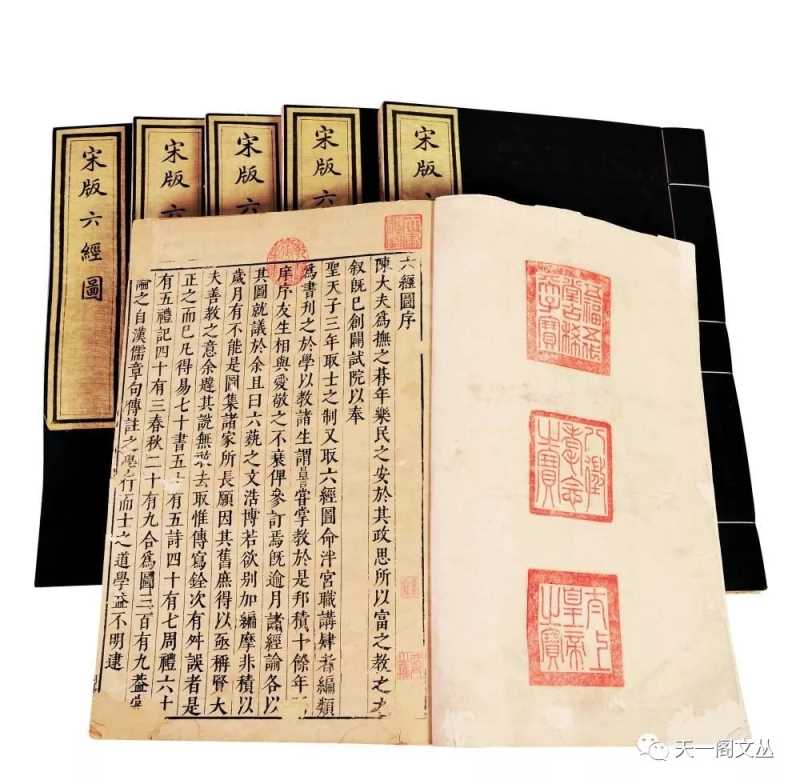 宋版六經圖
宋版六
宋版六
宋版六
宋版
六經圖序
陳大夫為撫之朞年樂民之安於其政思所以富之教之
叙既已創闢試院以奉
聖天子三年取士之制又取六經圖命泮宮職講肄者編類
為書刊之於學以教諸生謂昌言嘗掌教於是邦積十餘年
庠序友生相與愛敬之不衰俾參訂焉既逾月諸經論各以
其圖就議於余且曰六藝之文浩博若欲別加編摩非積以
歲月有不能是圖集諸家所長願因其舊庶得以亟稱賢大
夫善教之意余韙其說無敢去取惟傳寫銓次有舛誤者是
正之而已凡得易七十書五十有五詩四十有七周禮六十
有五禮記四十有三春秋二十有九合為圖三百有九蓋嘗
論之自漢儒章句傳註之學行而士之道學益不明逮
五福五代堂古稀天子寶
八徵耄念之寶
太上皇帝之寶
天一阁文丛